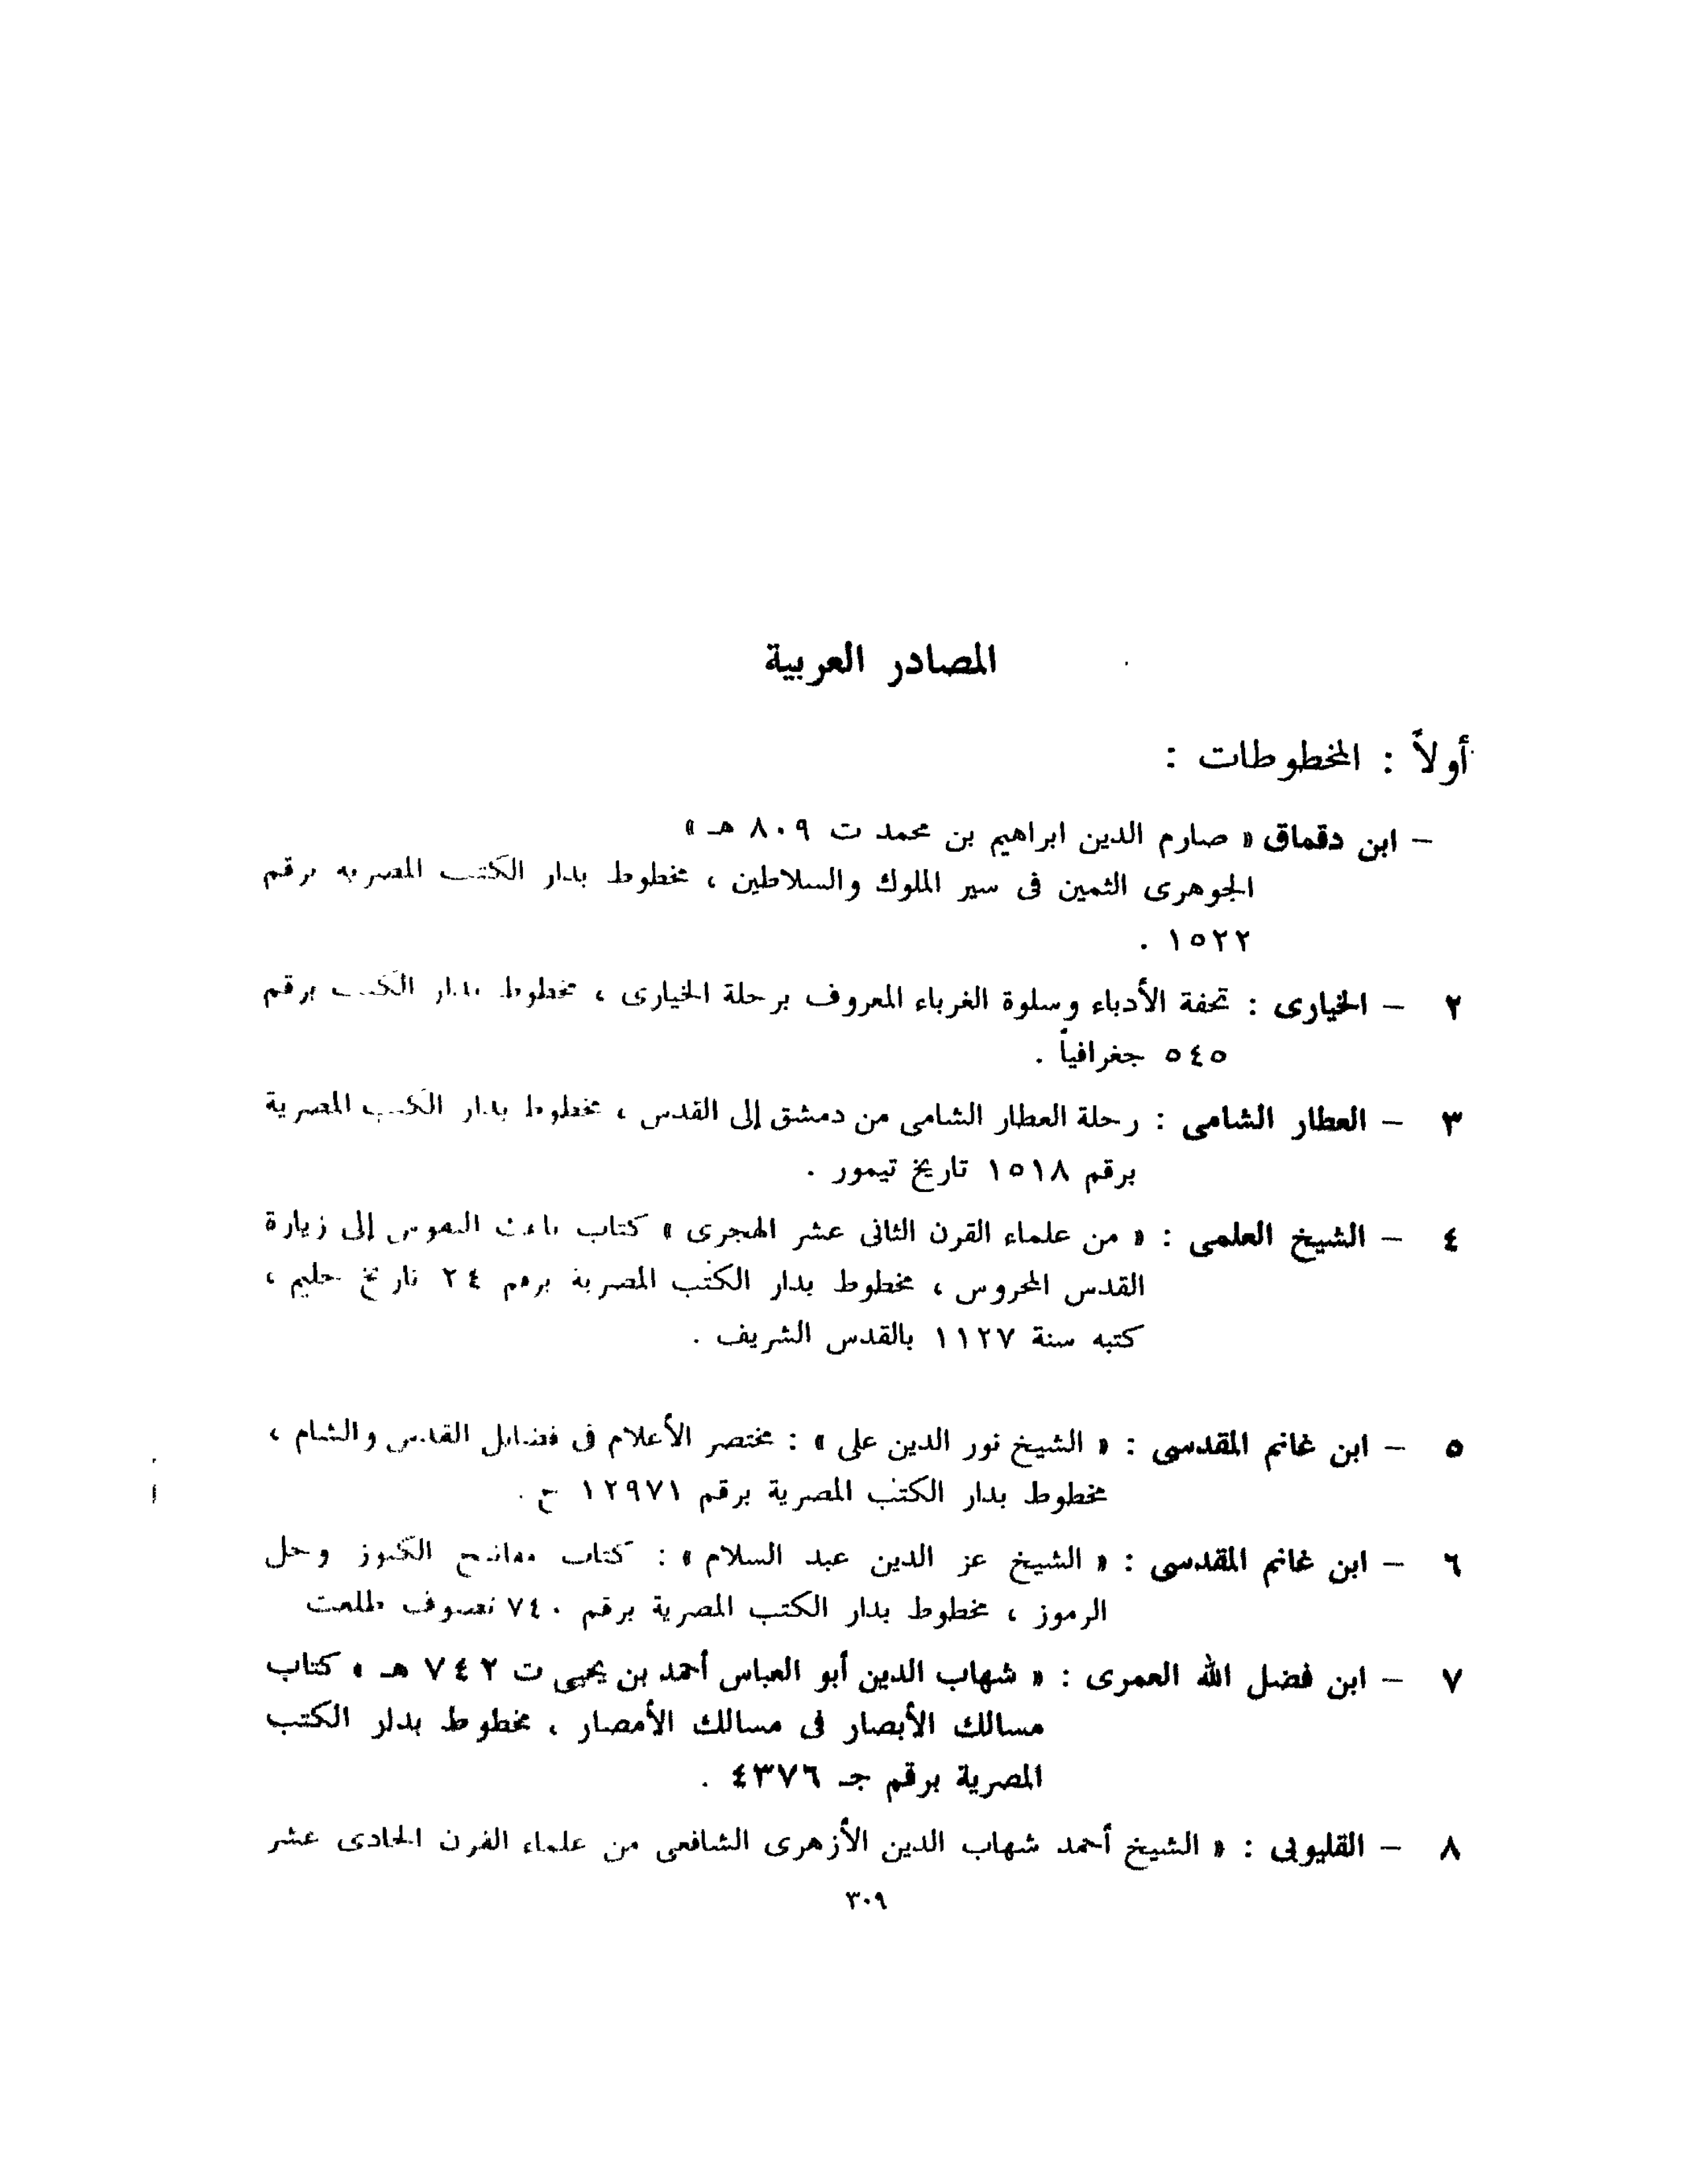 المصادر العربية
أولاً : المخطوطات :
– ابن دقماق « صارم الدين ابراهيم بن محمد ت ٨٠٩ هـ »
الجوهرى الثمين فى سير الملوك والسلاطين ، مخطوط بدار الكتب المصرية برقم
١٥٢٢ .
٢ – الخيارى : تحفة الأدباء وسلوة الغرباء المعروف برحلة الخيارى ، مخطوط بدار الكتب برقم
٥٤٥ جغرافياً .
٣ – العطار الشامى : رحلة العطار الشامى من دمشق إلى القدس ، مخطوط بدار الكتب المصرية
برقم ١٥١٨ تاريخ تيمور .
٤ – الشيخ العلمى : « من علماء القرن الثانى عشر الهجرى » كتاب باعث النفوس إلى زيارة
القدس المحروس ، مخطوط بدار الكتب المصرية برقم ٢٤ تاريخ حليم ،
كتبه سنة ١١٢٧ بالقدس الشريف .
٥ – ابن غانم المقدسى : « الشيخ نور الدين على » : مختصر الأعلام فى فضايل القدس والشام ،
مخطوط بدار الكتب المصرية برقم ١٢٩٧١ ح .
٦ – ابن غانم المقدسى : « الشيخ عز الدين عبد السلام » : كتاب مفاتيح الكنوز وحل
الرموز ، مخطوط بدار الكتب المصرية برقم ٧٤٠ تصوف طلعت
٧ – ابن فضل الله العمرى : « شهاب الدين أبو العباس أحمد بن يحيى ت ٧٤٢ هـ » كتاب
مسالك الأبصار فى مسالك الأمصار ، مخطوط بدار الكتب
المصرية برقم جـ ٤٣٧٦ .
٨ – القليوبى : « الشيخ أحمد شهاب الدين الأزهرى الشافعى من علماء القرن الحادى عشر
٣٠٩